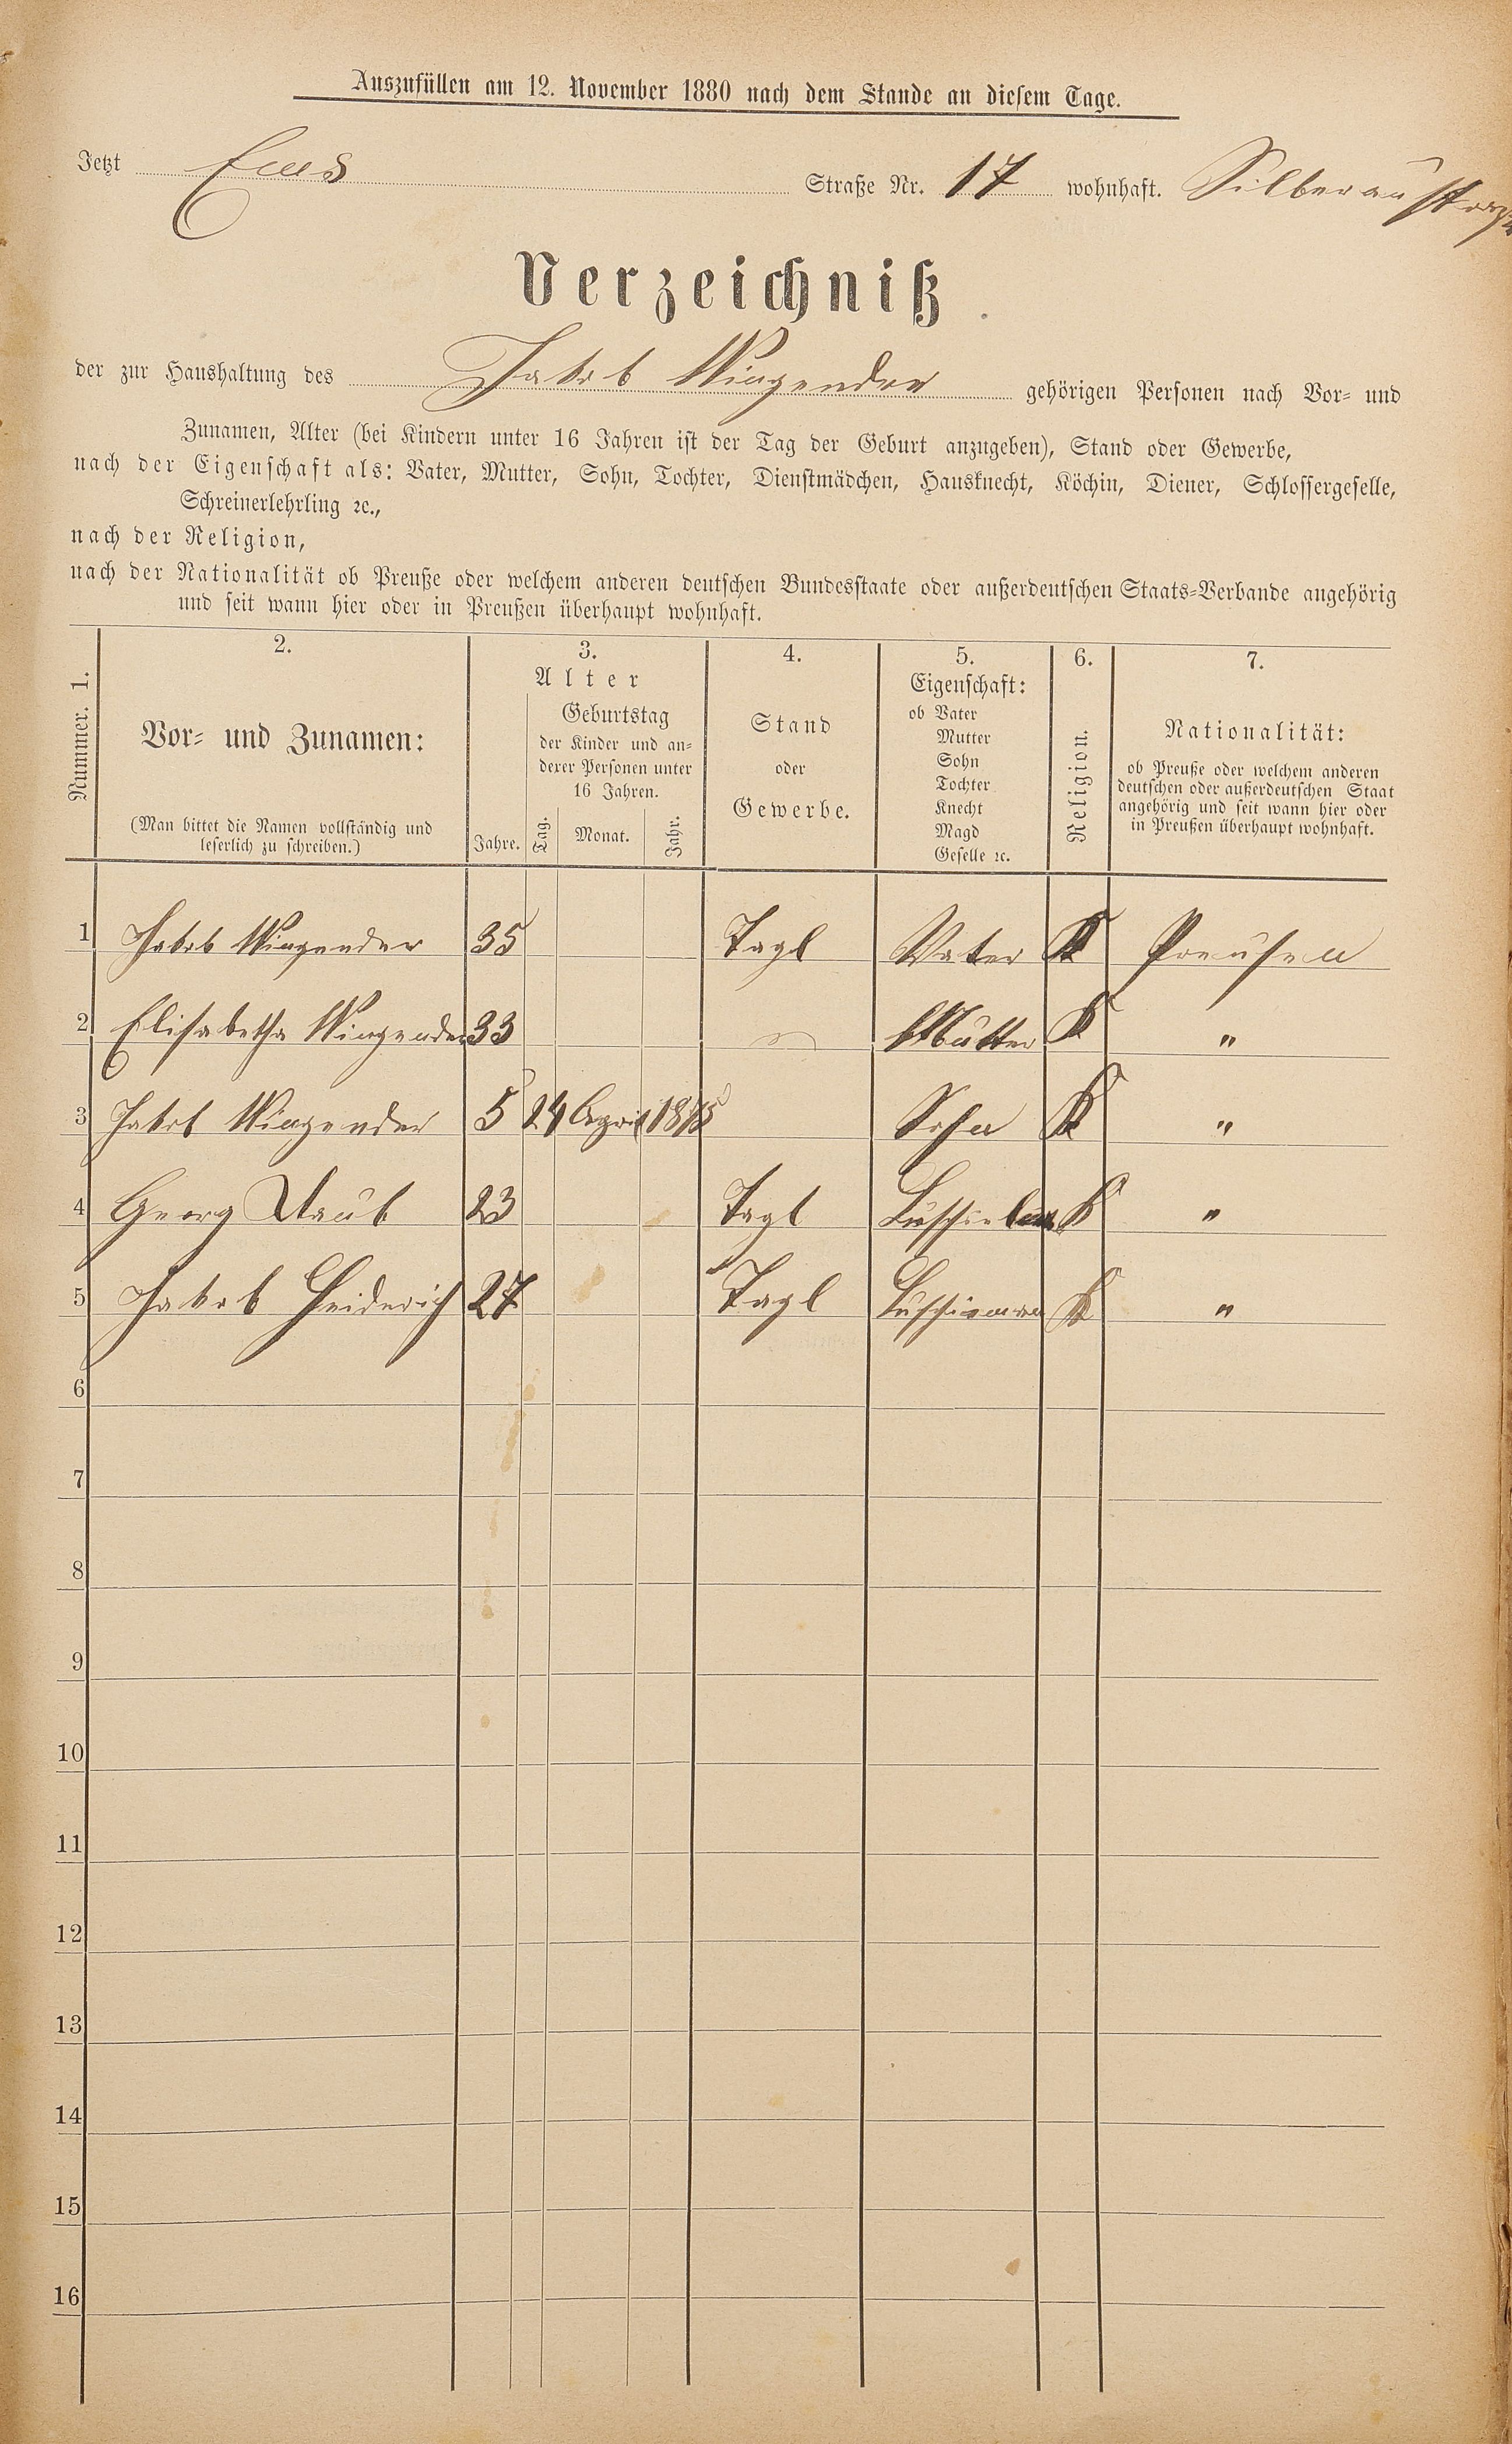 Auszufüllen am 12. November 1880 nach dem Stande an diesem Tage.
Jetzt Ems Straße Nr. 17 wohnhaft. Silberaustraße
Verzeichniß
der zur Haushaltung des Jakob Wingender gehörigen Personen nach Vor- und
Zunamen, Alter (bei Kindern unter 16 Jahren ist der Tag der Geburt anzugeben), Stand oder Gewerbe,
nach der Eigenschaft als: Vater, Mutter, Sohn, Tochter, Dienstmädchen, Hausknecht, Köchin, Diener, Schlossergeselle,
Schreinerlehrling ꝛc.,
nach der Religion,
nach der Nationalität ob Preuße oder welchem anderen deutschen Bundesstaate oder außerdeutschen Staats-Verbande angehörig
und seit wann hier oder in Preußen überhaupt wohnhaft.
Nummer. 1.
2.
Vor- und Zunamen:
(Man bittet die Namen vollständig und
leserlich zu schreiben.)
3.
Alter
Jahre.
Geburtstag
der Kinder und an-
derer Personen unter
16 Jahren.
Tag. Monat. Jahr.
4.
Stand
oder
Gewerbe.
5.
Eigenschaft:
ob Vater
Mutter
Sohn
Tochter
Knecht
Magd
Geselle ꝛc.
6.
Religion.
7.
Nationalität:
ob Preuße oder welchem anderen
deutschen oder außerdeutschen Staat
angehörig und seit wann hier oder
in Preußen überhaupt wohnhaft.
1 Jakob Wingender 35 Tagl Vater K Preußen
2 Elisabetha Wingender 33 Mutter K "
3 Jakob Wingender 5 24 April 1875 Sohn K "
4 Georg Staub 23 Tagl K "
5 Jakob Heiderich 27 Tagl K "
6
7
8
9
10
11
12
13
14
15
16